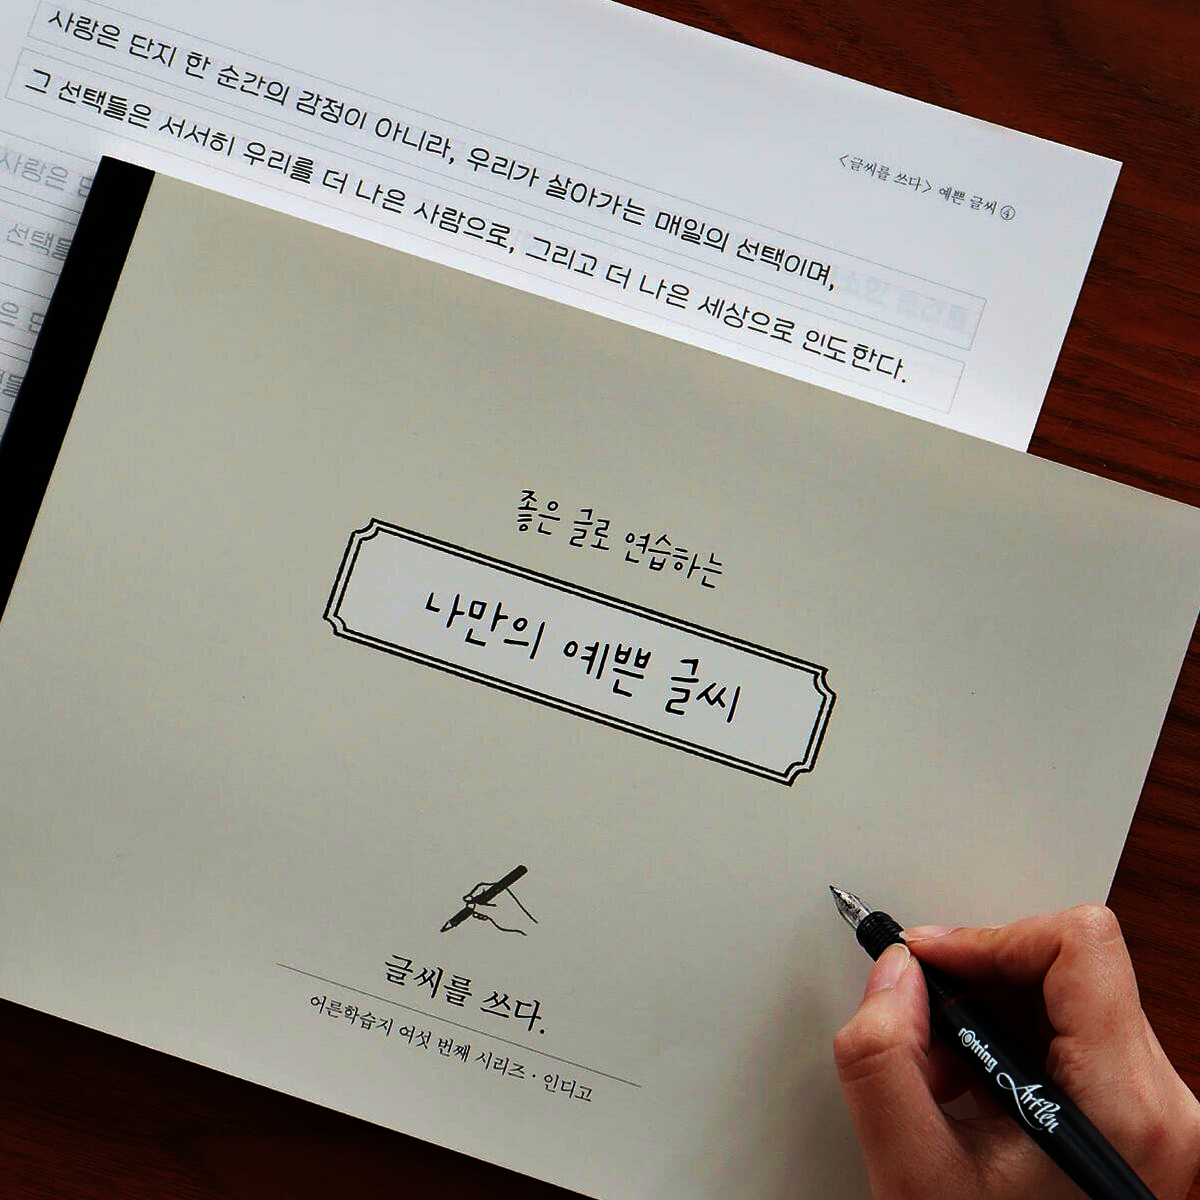 사랑은 단지 한 순간의 감정이 아니라, 우리가 살아가는 매일의 선택이며,
그 선택들은 서서히 우리를 더 나은 사람으로, 그리고 더 나은 세상으로 인도한다.
<글씨를 쓰다> 예쁜 글씨 ④
사랑은
선택들
좋은 글로 연습하는
나만의 예쁜 글씨
글씨를 쓰다.
어른학습지 여섯 번째 시리즈 · 인디고
rOtring ArtPen